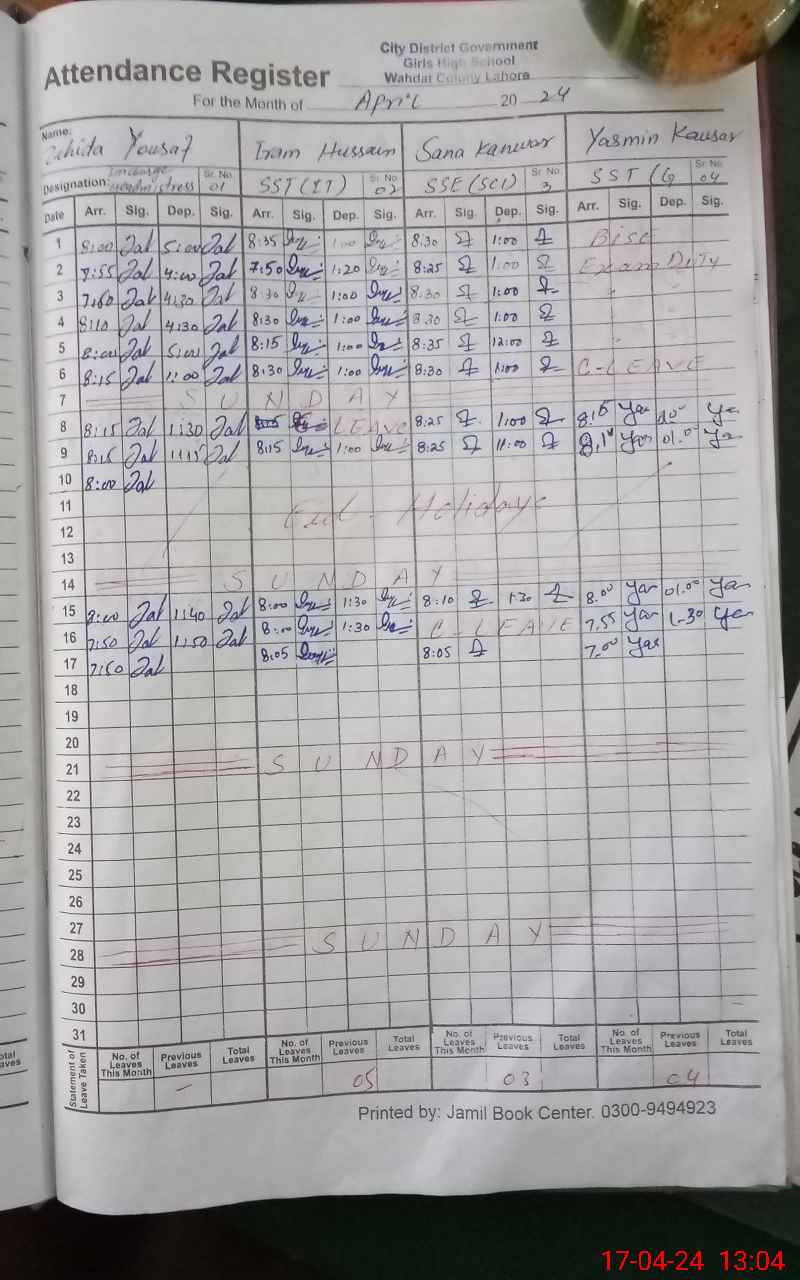 City District Government
Girls High School
Wahdat Colony Lahore
Attendance Register
For the Month of April 20 24
Name: Yousaf Iram Hussain Sana Kanwar Yasmin Kausar
Designation: Incharge Headmistress Sr. No. 01 SST (IT) Sr. No. 02 SSE (SCI) Sr. No. 3 SST (G Sr. No. 04
Date Arr. Sig. Dep. Sig. Arr. Sig. Dep. Sig. Arr. Sig. Dep. Sig. Arr. Sig. Dep. Sig.
1 8:00 5:00 8:35 1:00 8:30 1:00 Bise
2 7:55 4:00 7:50 1:20 8:25 1:00 Exam Duty
3 7:50 4:30 8:30 1:00 8:30 1:00 "
4 8:10 4:30 8:30 1:00 8:30 1:00 "
5 8:00 5:00 8:15 1:00 8:35 12:00 "
6 8:15 1:00 8:30 1:00 8:30 1:00 C-LEAVE
7 SUNDAY
8 8:15 1:30 LEAVE 8:25 1:00 8:15 Yas
9 8:15 1:15 8:15 1:00 8:25 11:00 Yas 01.00 Yas
10 8:00
11 Eid - Holidays
12
13
14 SUNDAY
15 8:00 1:40 8:00 1:30 8:10 1:30 8.00 Yas 01.00 Yas
16 7:50 1:50 8:00 1:30 C-LEAVE 7.55 Yas 1-30 Yas
17 7:50 8:05 8:05 7.00 Yas
18
19
20
21 SUNDAY
22
23
24
25
26
27
28 SUNDAY
29
30
31
Statement of Leave Taken No. of Leaves This Month Previous Leaves Total Leaves No. of Leaves This Month Previous Leaves Total Leaves No. of Leaves This Month Previous Leaves Total Leaves No. of Leaves This Month Previous Leaves Total Leaves
- 05 03 04
Printed by: Jamil Book Center. 0300-9494923
17-04-24 13:04